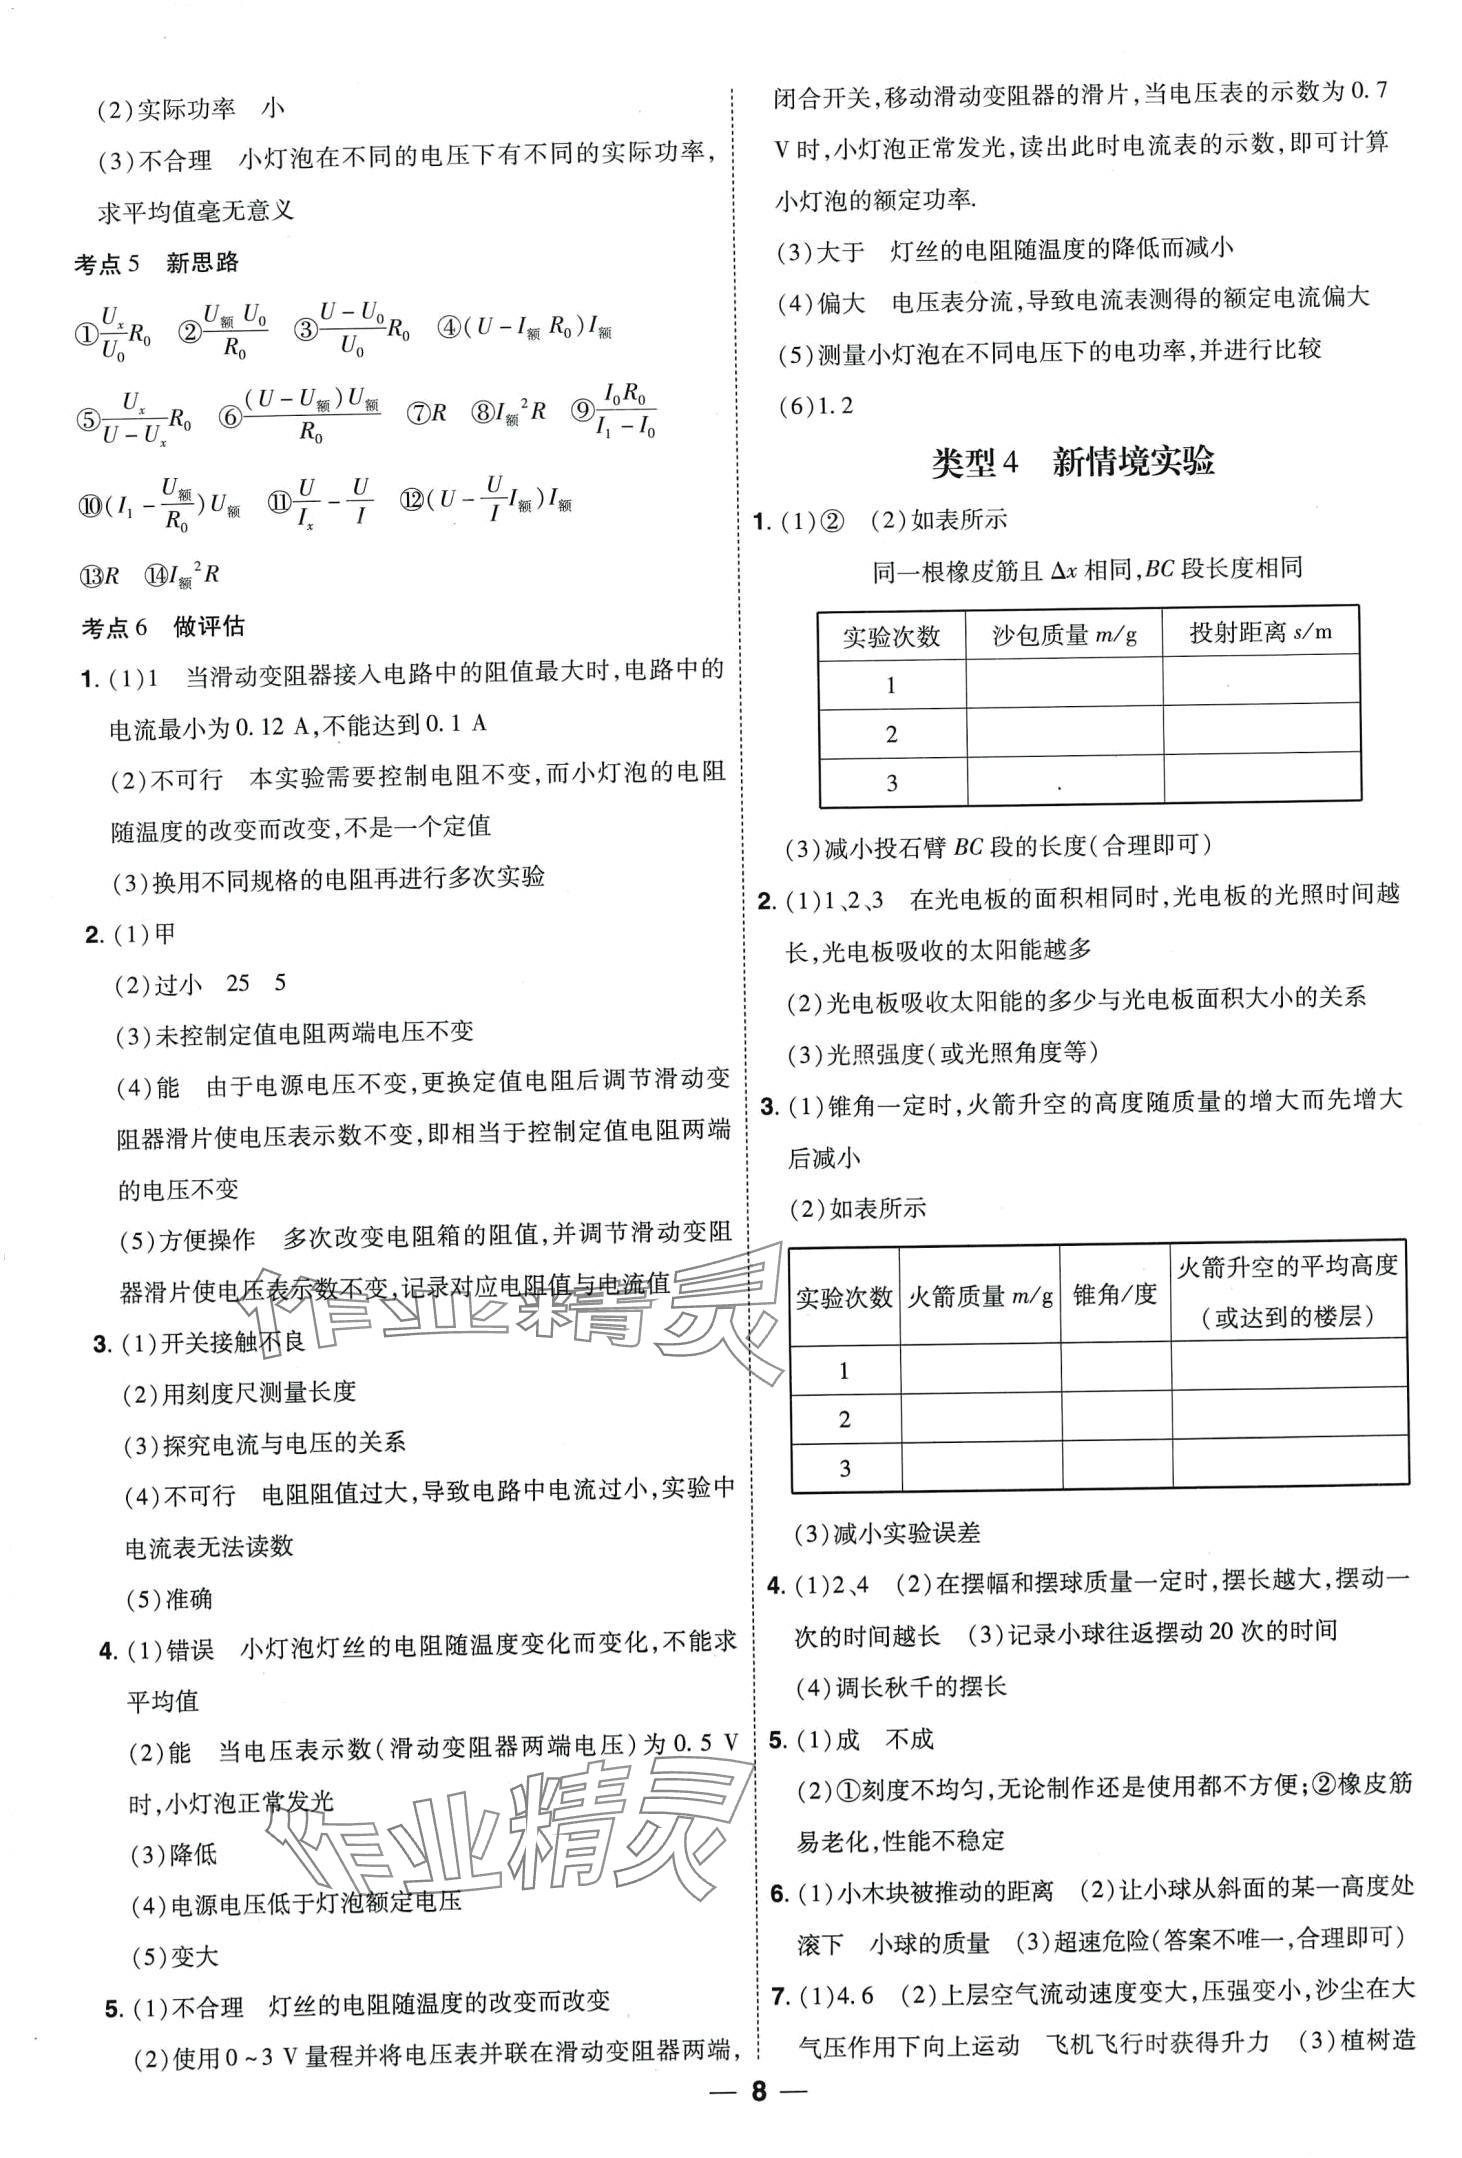 (2)实际功率　小
(3)不合理　小灯泡在不同的电压下有不同的实际功率,
求平均值毫无意义
考点5　新思路
①Uₓ/U₀ R₀　②U额 U₀/R₀　③(U－U₀)/U₀ R₀　④(U－I额 R₀)I额
⑤Uₓ/(U－Uₓ) R₀　⑥(U－U额)U额/R₀　⑦R　⑧I额²R　⑨I₀R₀/(I₁－I₀)
⑩(I₁－U额/R₀)U额　⑪U/Iₓ－U/I　⑫(U－U/I I额)I额
⑬R　⑭I额²R
考点6　做评估
1. (1)1　当滑动变阻器接入电路中的阻值最大时,电路中的
电流最小为0.12 A,不能达到0.1 A
(2)不可行　本实验需要控制电阻不变,而小灯泡的电阻
随温度的改变而改变,不是一个定值
(3)换用不同规格的电阻再进行多次实验
2. (1)甲
(2)过小　25　5
(3)未控制定值电阻两端电压不变
(4)能　由于电源电压不变,更换定值电阻后调节滑动变
阻器滑片使电压表示数不变,即相当于控制定值电阻两端
的电压不变
(5)方便操作　多次改变电阻箱的阻值,并调节滑动变阻
器滑片使电压表示数不变,记录对应电阻值与电流值
3. (1)开关接触不良
(2)用刻度尺测量长度
(3)探究电流与电压的关系
(4)不可行　电阻阻值过大,导致电路中电流过小,实验中
电流表无法读数
(5)准确
4. (1)错误　小灯泡灯丝的电阻随温度变化而变化,不能求
平均值
(2)能　当电压表示数(滑动变阻器两端电压)为0.5 V
时,小灯泡正常发光
(3)降低
(4)电源电压低于灯泡额定电压
(5)变大
5. (1)不合理　灯丝的电阻随温度的改变而改变
(2)使用0~3 V量程并将电压表并联在滑动变阻器两端,
闭合开关,移动滑动变阻器的滑片,当电压表的示数为0.7
V时,小灯泡正常发光,读出此时电流表的示数,即可计算
小灯泡的额定功率.
(3)大于　灯丝的电阻随温度的降低而减小
(4)偏大　电压表分流,导致电流表测得的额定电流偏大
(5)测量小灯泡在不同电压下的电功率,并进行比较
(6)1.2
类型4　新情境实验
1. (1)②　(2)如表所示
同一根橡皮筋且Δx相同,BC段长度相同
实验次数　沙包质量m/g　投射距离s/m
1
2
3
(3)减小投石臂BC段的长度(合理即可)
2. (1)1、2、3　在光电板的面积相同时,光电板的光照时间越
长,光电板吸收的太阳能越多
(2)光电板吸收太阳能的多少与光电板面积大小的关系
(3)光照强度(或光照角度等)
3. (1)锥角一定时,火箭升空的高度随质量的增大而先增大
后减小
(2)如表所示
实验次数　火箭质量m/g　锥角/度　火箭升空的平均高度
(或达到的楼层)
1
2
3
(3)减小实验误差
4. (1)2、4　(2)在摆幅和摆球质量一定时,摆长越大,摆动一
次的时间越长　(3)记录小球往返摆动20次的时间
(4)调长秋千的摆长
5. (1)成　不成
(2)①刻度不均匀,无论制作还是使用都不方便;②橡皮筋
易老化,性能不稳定
6. (1)小木块被推动的距离　(2)让小球从斜面的某一高度处
滚下　小球的质量　(3)超速危险(答案不唯一,合理即可)
7. (1)4.6　(2)上层空气流动速度变大,压强变小,沙尘在大
气压作用下向上运动　飞机飞行时获得升力　(3)植树造
— 8 —
作业精灵
作业精灵